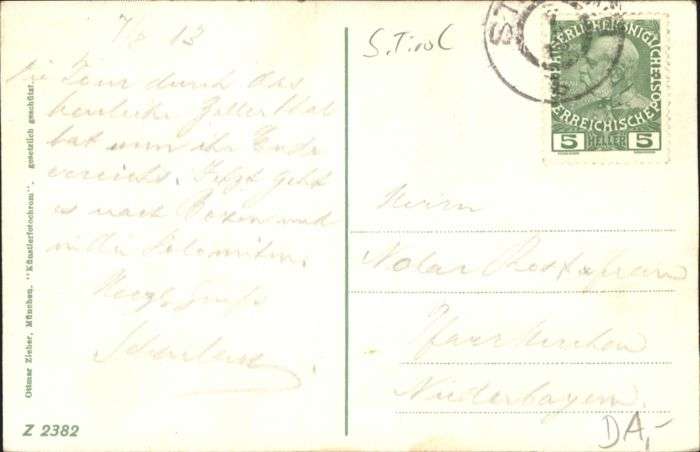 7/6 13
Die Tour durch das
herrliche Zillerthal
hat nun ihr Ende
erreicht. Jetzt geht
es nach Bozen und
in die Dolomiten.
Herzl. Gruß
S. Tirol
ST
KAISERLICHE KÖNIGLICHE ÖSTERREICHISCHE POST
5 HELLER 5
Herrn
Notar
Pfarrkirchen
Niederbayern.
DA,-
Ottmar Zieher, München. "Künstlerfotochrom", gesetzlich geschützt.
Z 2382